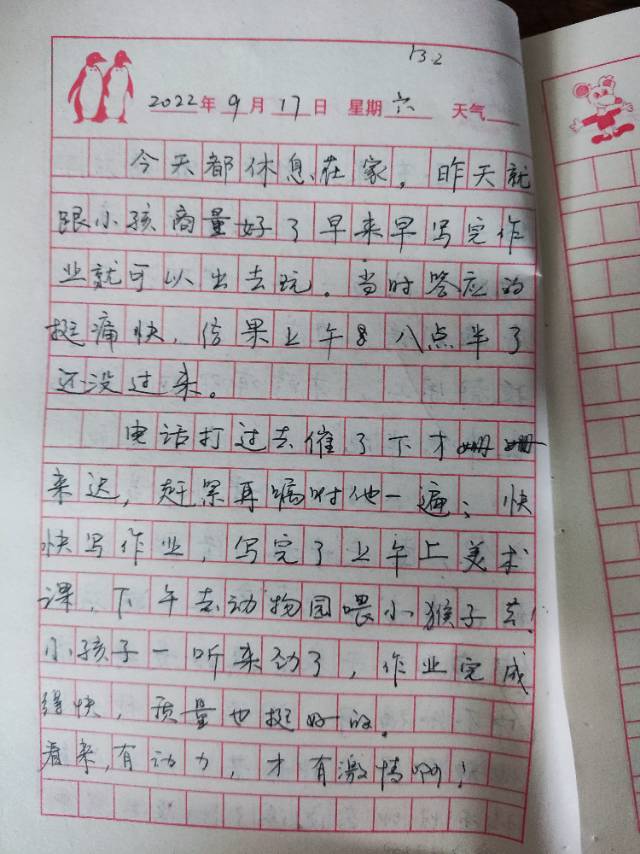 132
2022年9月17日 星期六 天气
今天都休息在家，昨天就
跟小孩商量好了早来早写完作
业就可以出去玩。当时答应的
挺痛快，结果上午8八点半了
还没过来。
电话打过去催了下才姗姗
来迟，赶紧再嘱咐他一遍；快
快写作业，写完了上午上美术
课，下午去动物园喂小猴子去！
小孩子一听来劲了，作业完成
得快，质量也挺好的。
看来，有动力，才有激情啊！